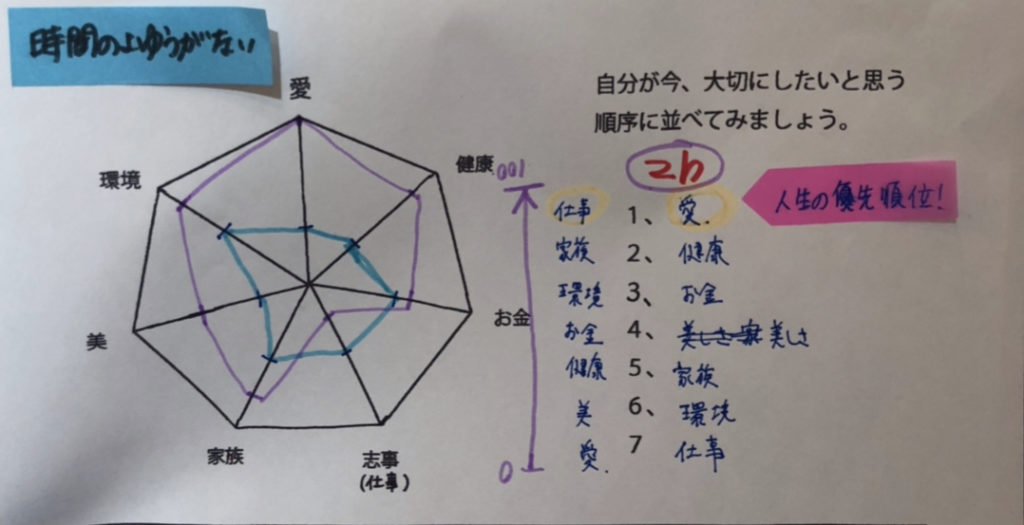 時間のよゆうがない
愛
健康
お金
志事
(仕事)
家族
美
環境
自分が今、大切にしたいと思う
順序に並べてみましょう。
100
0
2h
人生の優先順位!
仕事 1、 愛.
家族 2、 健康
環境 3、 お金
お金 4、 美しさ 家 美しさ
健康 5、 家族
美 6、 環境
愛. 7 仕事